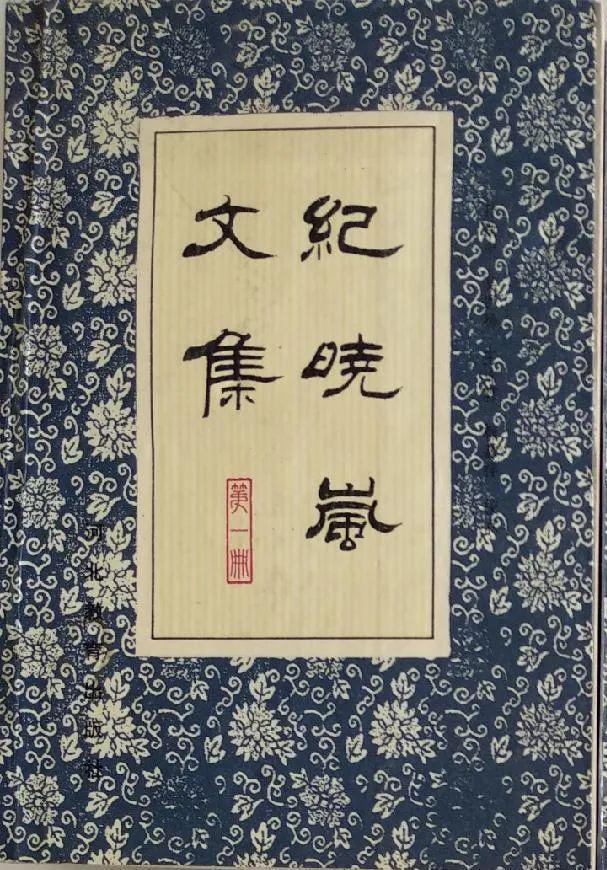 紀曉嵐
文集
第一冊
河北教育出版社